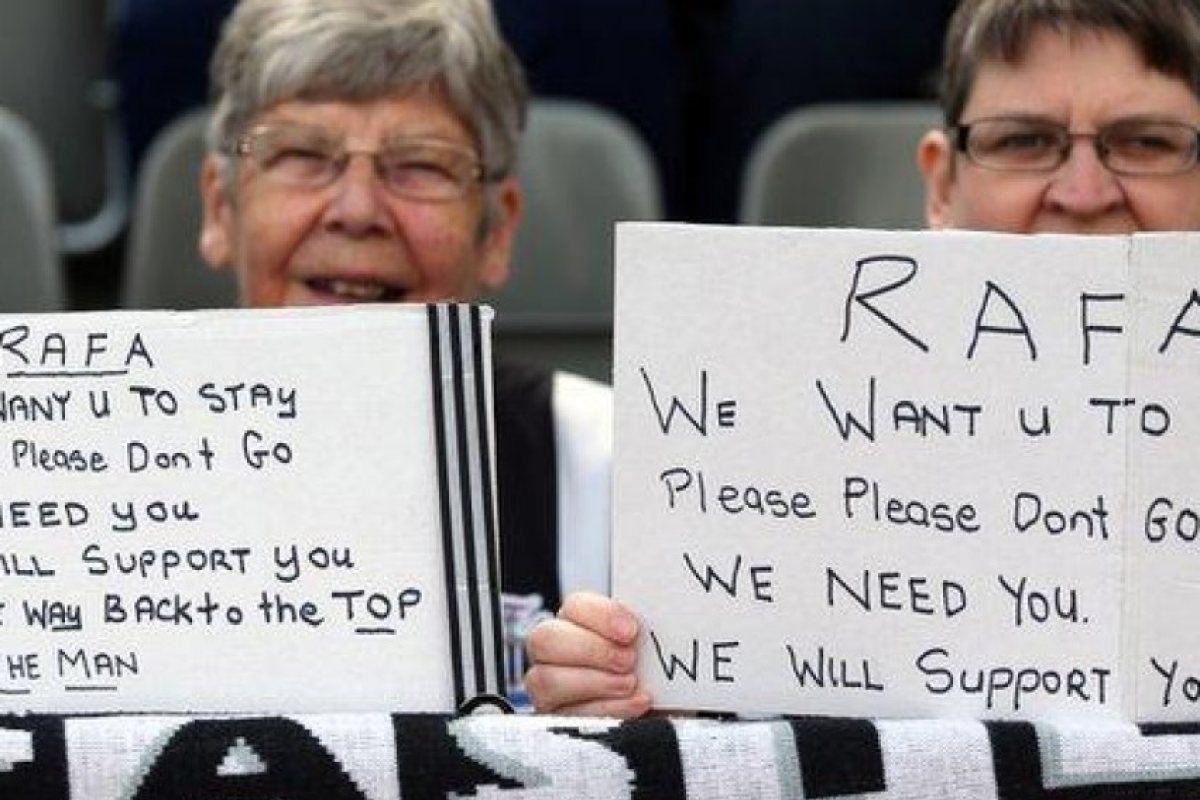 RAFA
WANY u TO STAY
Please Dont Go
NEED you
WILL SUPPORT you
WAY BACK to the TOP
THE MAN
RAFA
WE WANT u TO
Please Please Dont Go
WE NEED You.
WE WILL SUPPORT Yo